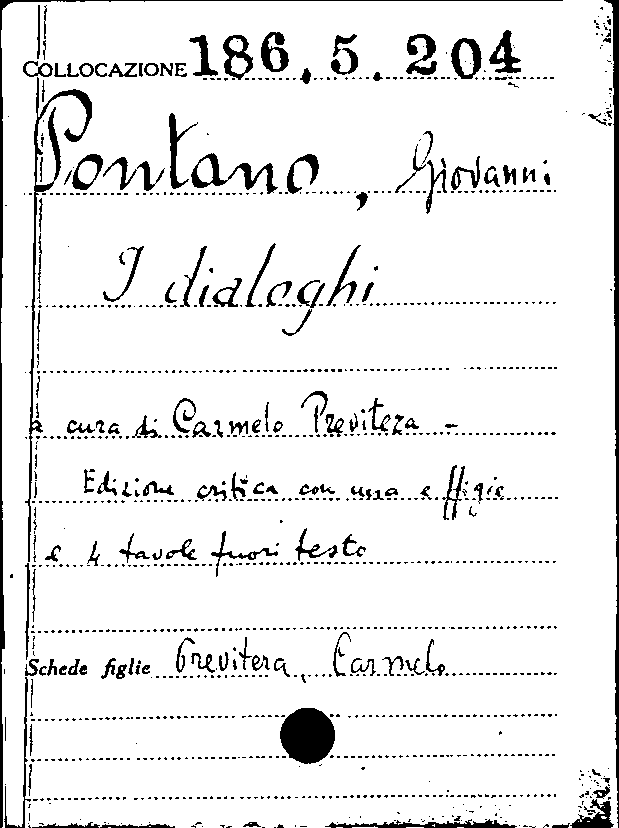 COLLOCAZIONE 186.5.204
Pontano, Giovanni
I dialoghi
a cura di Carmelo Previtera -
Edizione critica con una effigie
e 4 tavole fuori testo
Schede figlie Previtera, Carmelo